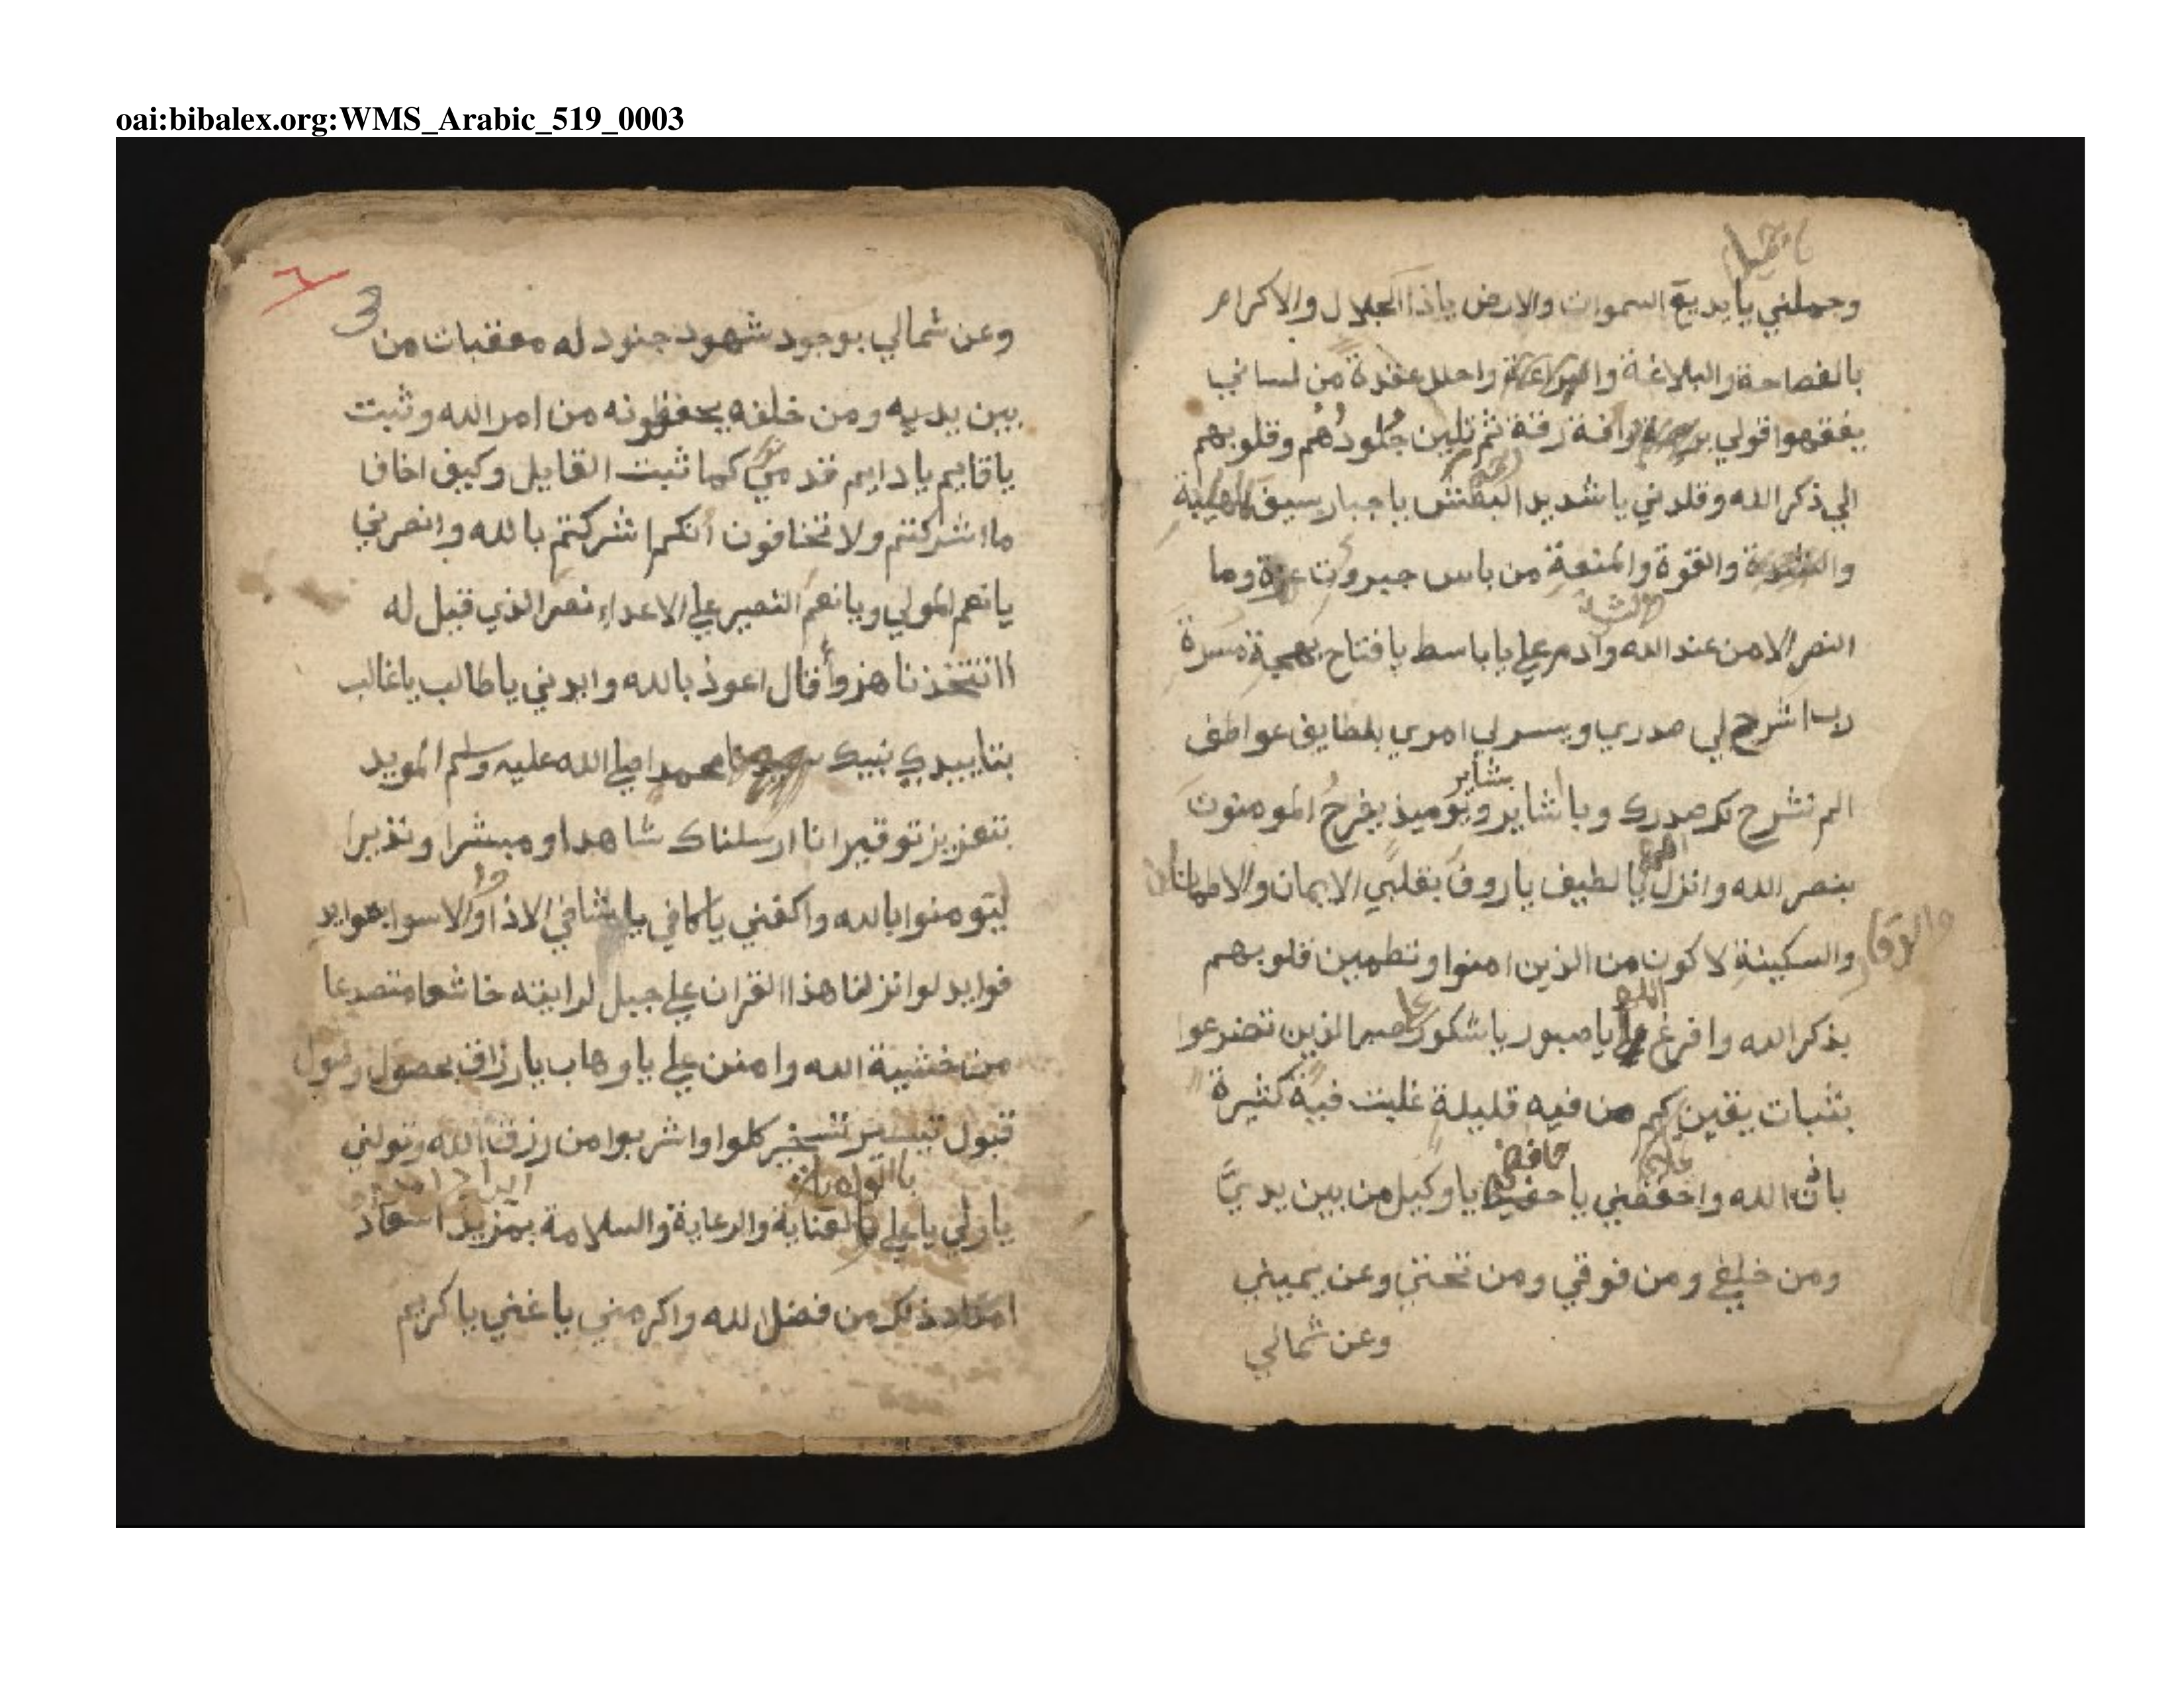 oai:bibalex.org:WMS_Arabic_519_0003
وجملني يا بديع السموات والارض ياذا الجلال والاكرام
بالفصاحة والبلاغة والبراعة واحلل عقدة من لساني
يفقهوا قولي برافة رقة ثم تلين جُلودُهُم وقلوبهم
الي ذكر الله وقلدني يا شديد البطش يا جبار سيف الهيبة
والشدة والقوة والمنعة من باس جبروت عزة وما
النصر الا من عند الله وادم علي يا باسط يا فتاح بهجة مسرة
رب اشرح لي صدري ويسر لي امري بلطايف عواطف
الم نشرح لك صدرك وباشاير بشاير ويوميذ يفرحُ المومنون
بنصر الله وانزل اللهم يا لطيف يا روف بقلبي الايمان والاطمانان
والسكينة والوقار لاكون من الذين امنوا وتطمين قلوبهم
بذكر الله وافرغ علي يا صبور يا شكور صبر الذين تضرعوا
بثبات يقين كم من فيه قليلة غلبت فية كثيرة
باذن الله واحفظني يا حفيظ يا وكيل من بين يديَّ
ومن خلفي ومن فوقي ومن تحتي وعن يميني
وعن شمالي
3
وعن شمالي بوجود شهود جنود له معقبات من
بين يديه ومن خلفه يحفظونه من امر الله وثبت
يا قايم يا دايم قدمي كما ثبت القايل وكيف اخاف
ما اشركتم ولا تخافون انكم اشركتم بالله وانصرني
يا نعم المولي ويا نعم النصير علي الاعداء نصر الذي قيل له
ااتتخذنا هزوأ قال اعوذ بالله وايدني يا طالب يا غالب
بتاييدي نبيك سيدنا محمد صلي الله عليه وسلم المويد
بتعزيز توقير انا ارسلناك شاهدا ومبشرا ونذيرا
ليتومنوا بالله واكفني يا كافي يا شافي الاذا والاسوا بعوايد
فوايد لو انزلنا هذا القران علي جبل لرايته خاشعا متصدعا
من خشية الله وامنن علي يا وهاب يا رزاق بحصول وصول
قبول تيسير تسخير كلوا واشربوا من رزق الله وتولني
يا ولي يا علي بالولاية بالعناية والرعاية والسلامة بمزيد اسعاد
امداد ذلك من فضل الله واكرمني يا غني يا كريم